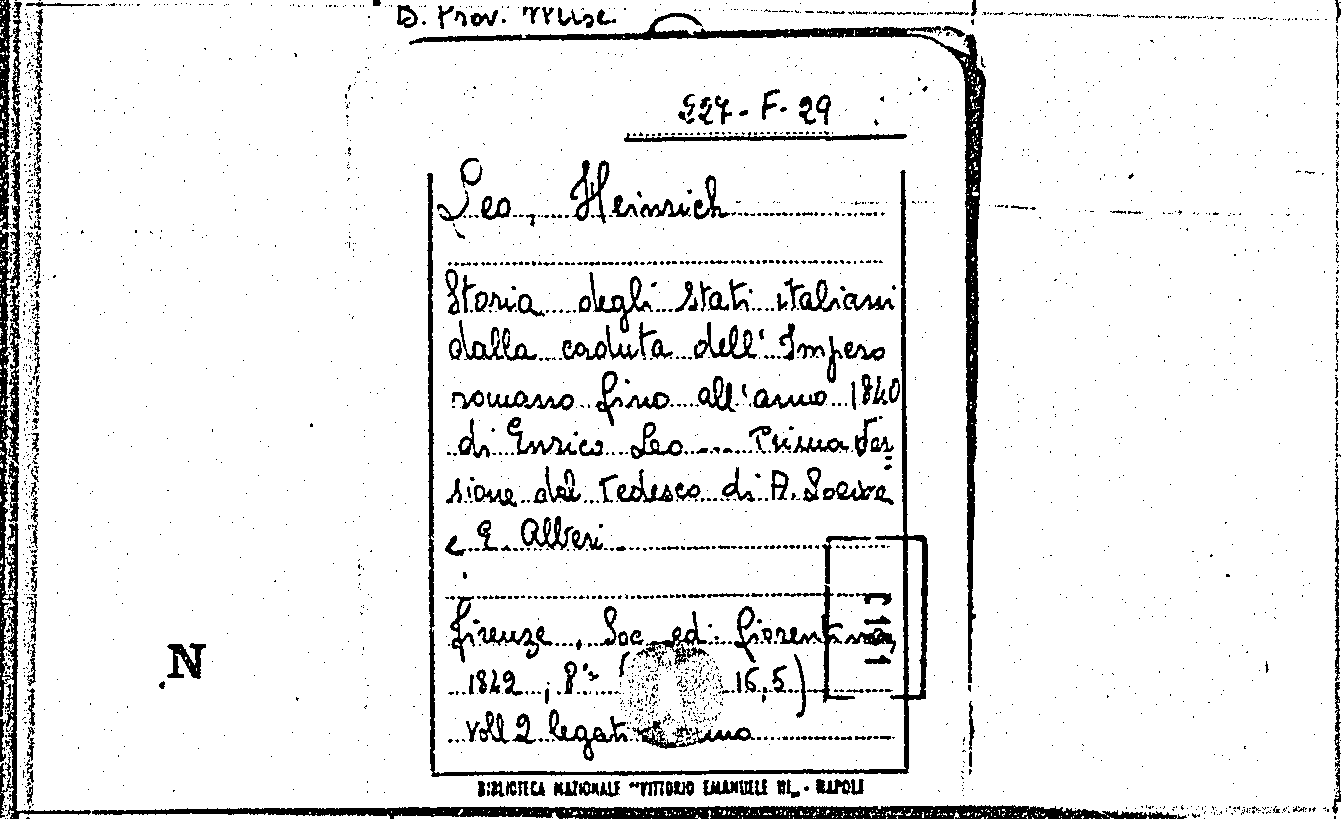 B. Prov. Misc.
227-F-29
Leo, Heinrich
Storia degli Stati italiani
dalla caduta dell' Impero
romano fino all'anno 1840
di Enrico Leo ... Prima ver=
sione dal tedesco di A. Loewe
e E. Alberi
Firenze, Soc. ed. fiorentina,
1842, 8° ( 16,5)
voll 2 legati uno
BIBLIOTECA NAZIONALE "VITTORIO EMANUELE III" - NAPOLI
N